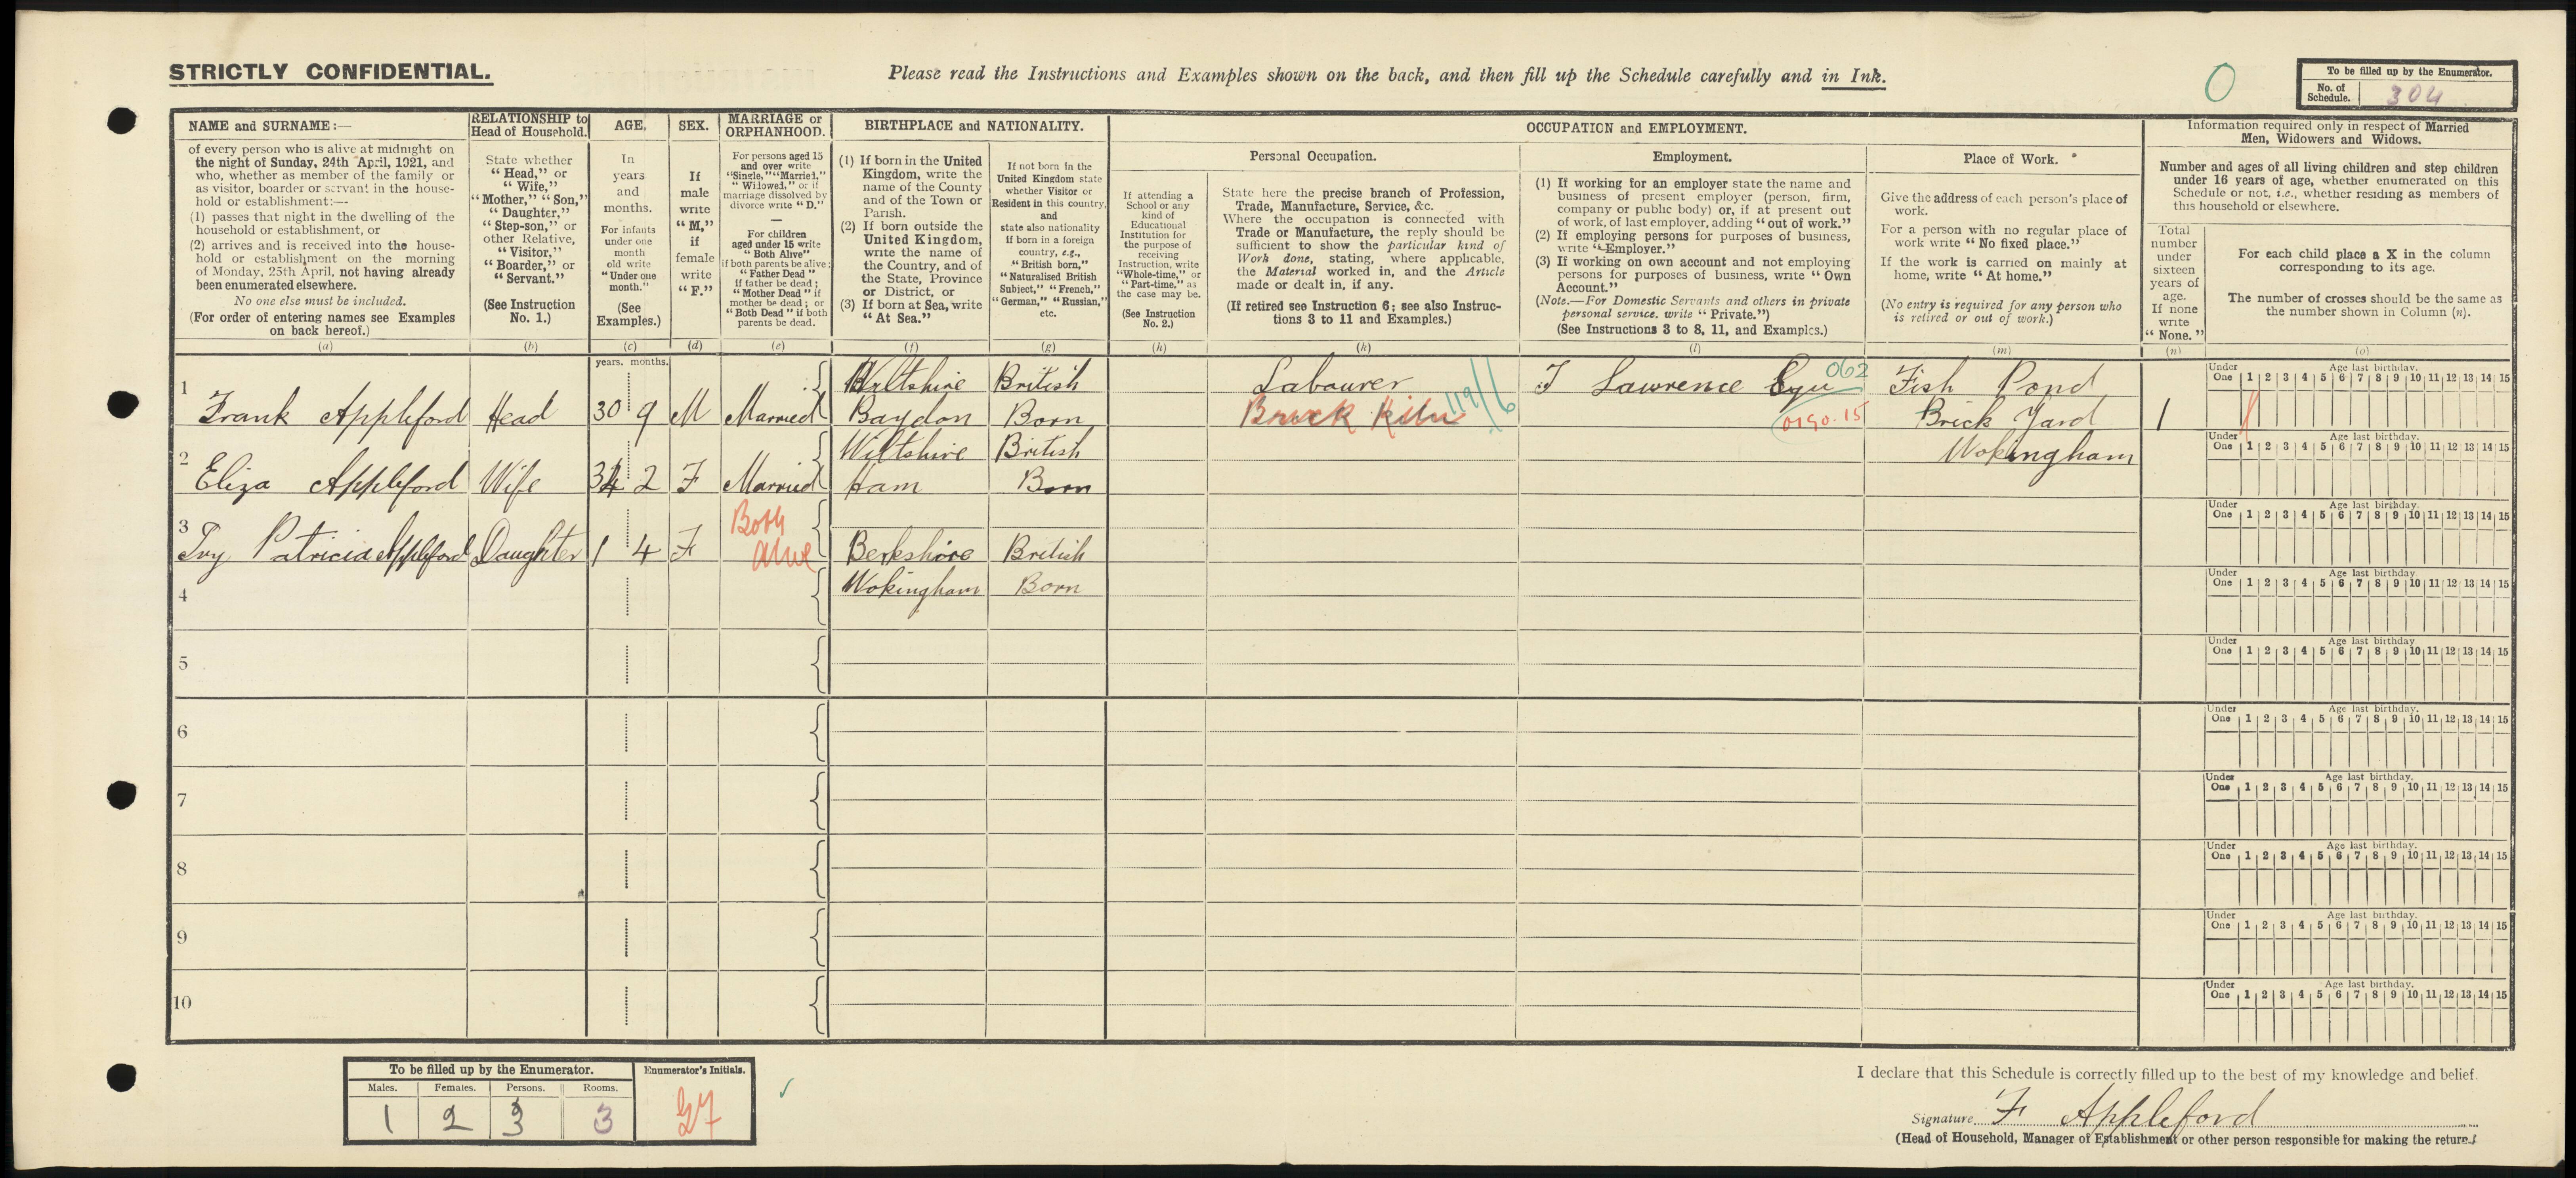 STRICTLY CONFIDENTIAL.
Please read the Instructions and Examples shown on the back, and then fill up the Schedule carefully and in Ink.
0
To be filled up by the Enumerator.
No. of Schedule. 304
NAME and SURNAME:—
of every person who is alive at midnight on
the night of Sunday, 24th April, 1921, and
who, whether as member of the family or
as visitor, boarder or servant in the house-
hold or establishment:—
(1) passes that night in the dwelling of the
household or establishment, or
(2) arrives and is received into the house-
hold or establishment on the morning
of Monday, 25th April, not having already
been enumerated elsewhere.
No one else must be included.
(For order of entering names see Examples
on back hereof.)
(a)
RELATIONSHIP to
Head of Household.
State whether
“Head,” or
“Wife,”
“Mother,” “Son,”
“Daughter,”
“Step-son,” or
other Relative,
“Visitor,”
“Boarder,” or
“Servant.”
(See Instruction
No. 1.)
(b)
AGE.
In
years
and
months.
For infants
under one
month
old write
“Under one
month.”
(See
Examples.)
(c)
SEX.
If
male
write
“M,”
if
female
write
“F.”
(d)
MARRIAGE or
ORPHANHOOD.
For persons aged 15
and over write
“Single,” “Married,”
“Widowed,” or if
marriage dissolved by
divorce write “D.”
—
For children
aged under 15 write
if both parents be alive:
“Both Alive”
“Father Dead”
if father be dead;
“Mother Dead” if
mother be dead; or
“Both Dead” if both
parents be dead.
(e)
BIRTHPLACE and NATIONALITY.
(1) If born in the United
Kingdom, write the
name of the County
and of the Town or
Parish.
(2) If born outside the
United Kingdom,
write the name of
the Country, and of
the State, Province
or District, or
(3) If born at Sea, write
“At Sea.”
(f)
If not born in the
United Kingdom state
whether Visitor or
Resident in this country,
and
state also nationality
if born in a foreign
country, e.g.,
“British born,”
“Naturalised British
Subject,” “French,”
“German,” “Russian,”
etc.
(g)
OCCUPATION and EMPLOYMENT.
If attending a
School or any
kind of
Educational
Institution for
the purpose of
receiving
Instruction, write
“Whole-time,” or
“Part-time,” as
the case may be.
(See Instruction
No. 2.)
(h)
Personal Occupation.
State here the precise branch of Profession,
Trade, Manufacture, Service, &c.
Where the occupation is connected with
Trade or Manufacture, the reply should be
sufficient to show the particular kind of
Work done, stating, where applicable,
the Material worked in, and the Article
made or dealt in, if any.
(If retired see Instruction 6; see also Instruc-
tions 3 to 11 and Examples.)
(k)
Employment.
(1) If working for an employer state the name and
business of present employer (person, firm,
company or public body) or, if at present out
of work, of last employer, adding “out of work.”
(2) If employing persons for purposes of business,
write “Employer.”
(3) If working on own account and not employing
persons for purposes of business, write “Own
Account.”
(Note.—For Domestic Servants and others in private
personal service, write “Private.”)
(See Instructions 3 to 8, 11, and Examples.)
(l)
Place of Work.
Give the address of each person's place of
work.
For a person with no regular place of
work write “No fixed place.”
If the work is carried on mainly at
home, write “At home.”
(No entry is required for any person who
is retired or out of work.)
(m)
Information required only in respect of Married
Men, Widowers and Widows.
Number and ages of all living children and step children
under 16 years of age, whether enumerated on this
Schedule or not, i.e., whether residing as members of
this household or elsewhere.
Total
number
under
sixteen
years of
age.
If none
write
“None.”
(n)
For each child place a X in the column
corresponding to its age.
The number of crosses should be the same as
the number shown in Column (n).
(o)
years. months.
1 Frank Appleford Head 30 9 M Married Wiltshire Baydon British Born Labourer Brick Kiln 119/6 Lawrence 062 0190.15 Fish Pond Brick Yard Wokingham 1
Under One 1 2 3 4 5 6 7 8 9 10 11 12 13 14 15
Age last birthday.
2 Eliza Appleford Wife 34 2 F Married Wiltshire Ham British Born
Under One 1 2 3 4 5 6 7 8 9 10 11 12 13 14 15
Age last birthday.
3 Ivy Patricia Appleford Daughter 1 4 F Both alive Berkshire British
Wokingham Born
Under One 1 2 3 4 5 6 7 8 9 10 11 12 13 14 15
Age last birthday.
4
Under One 1 2 3 4 5 6 7 8 9 10 11 12 13 14 15
Age last birthday.
5
Under One 1 2 3 4 5 6 7 8 9 10 11 12 13 14 15
Age last birthday.
6
Under One 1 2 3 4 5 6 7 8 9 10 11 12 13 14 15
Age last birthday.
7
Under One 1 2 3 4 5 6 7 8 9 10 11 12 13 14 15
Age last birthday.
8
Under One 1 2 3 4 5 6 7 8 9 10 11 12 13 14 15
Age last birthday.
9
Under One 1 2 3 4 5 6 7 8 9 10 11 12 13 14 15
Age last birthday.
10
Under One 1 2 3 4 5 6 7 8 9 10 11 12 13 14 15
Age last birthday.
To be filled up by the Enumerator.
Males. Females. Persons. Rooms.
1 2 3 3
Enumerator's Initials.
I declare that this Schedule is correctly filled up to the best of my knowledge and belief.
Signature F Appleford
(Head of Household, Manager of Establishment or other person responsible for making the return.)